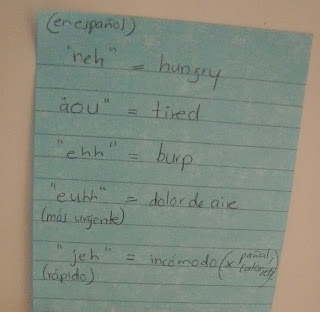 (en español)
"neh" = hungry
"aou" = tired
"ehh" = burp
"euhh" = dolor de aire
(más urgente)
"jeh" = incómodo (x pañal,
(rápido)